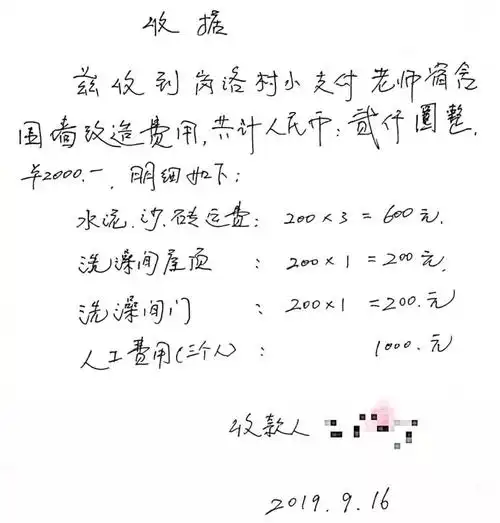 收据
兹收到岗洛村小支付老师宿舍
围墙改造费用,共计人民币:贰仟圆整,
¥2000.一,明细如下:
水泥、沙、砖运费:200×3=600元.
洗澡间屋顶:200×1=200元.
洗澡间门:200×1=200.元
人工费用(三个人):1000.元
收款人
2019.9.16